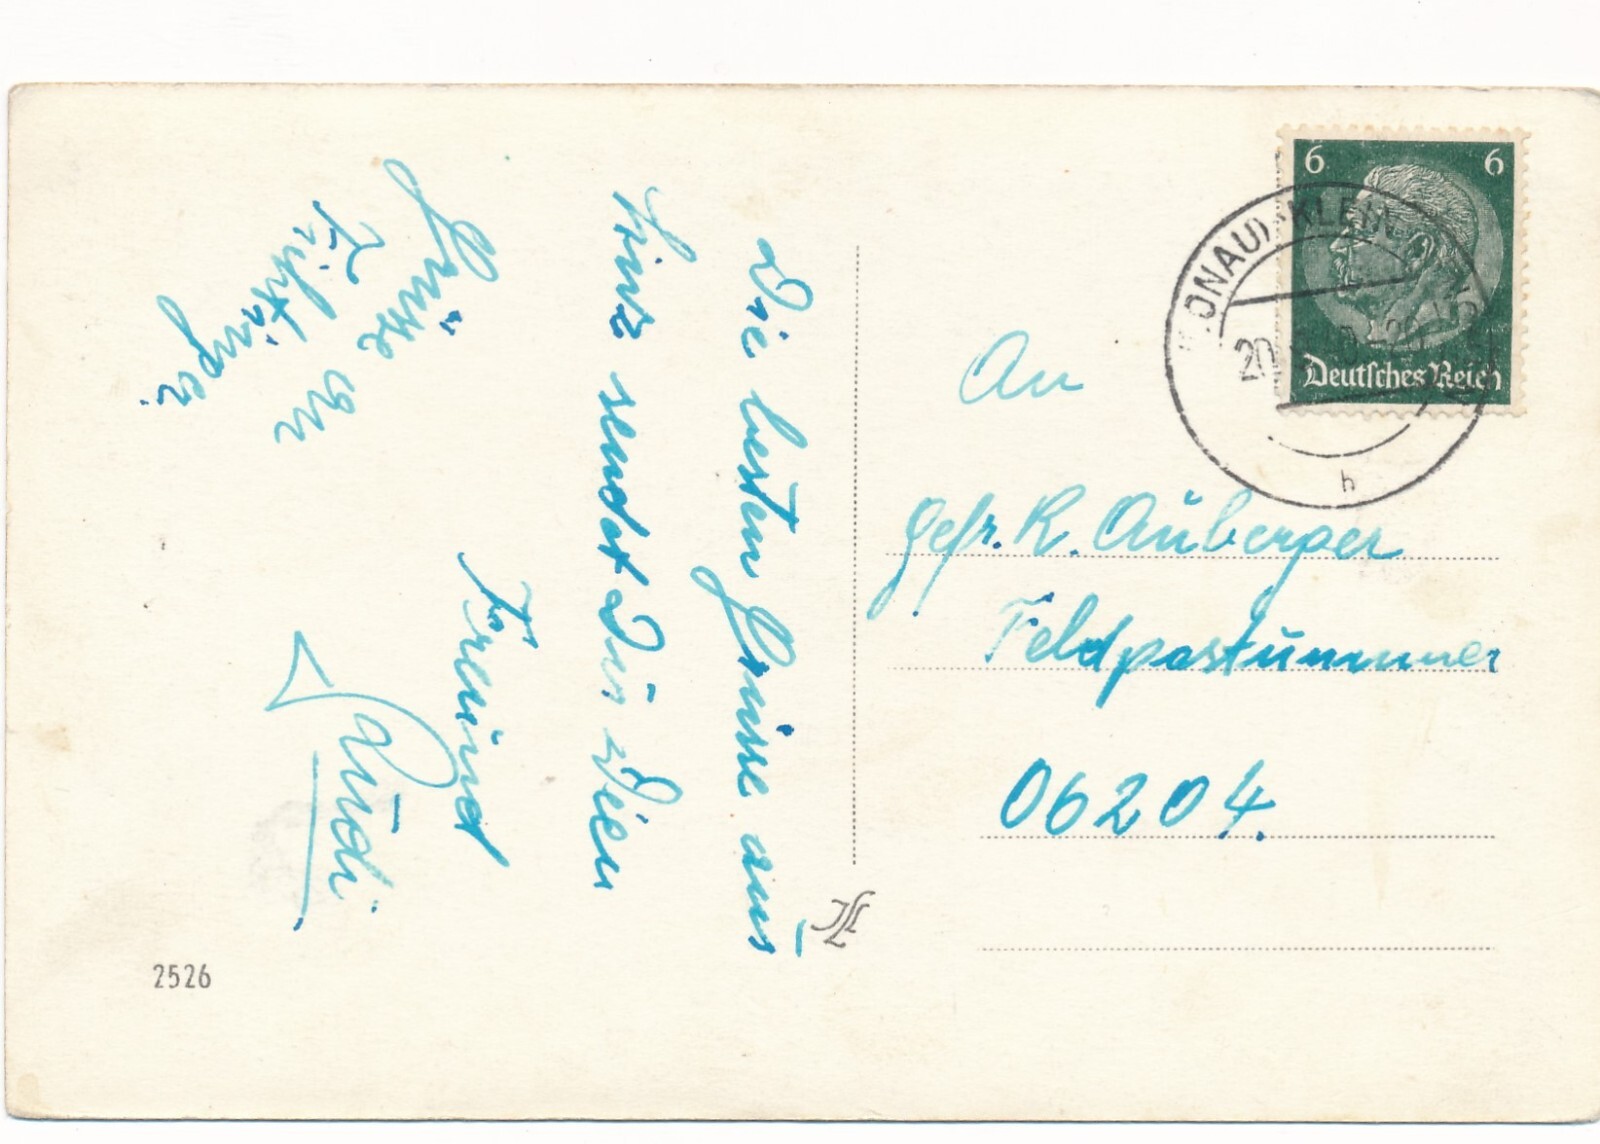 Die besten Grüsse aus
Linz sendet Dir Dein
Freund
Rudi
Grüsse an
An
Gefr. R. Auberger
Feldpostnummer
06204.
6 6
Deutsches Reich
(DONAU)-KLEIN
20
h
2526